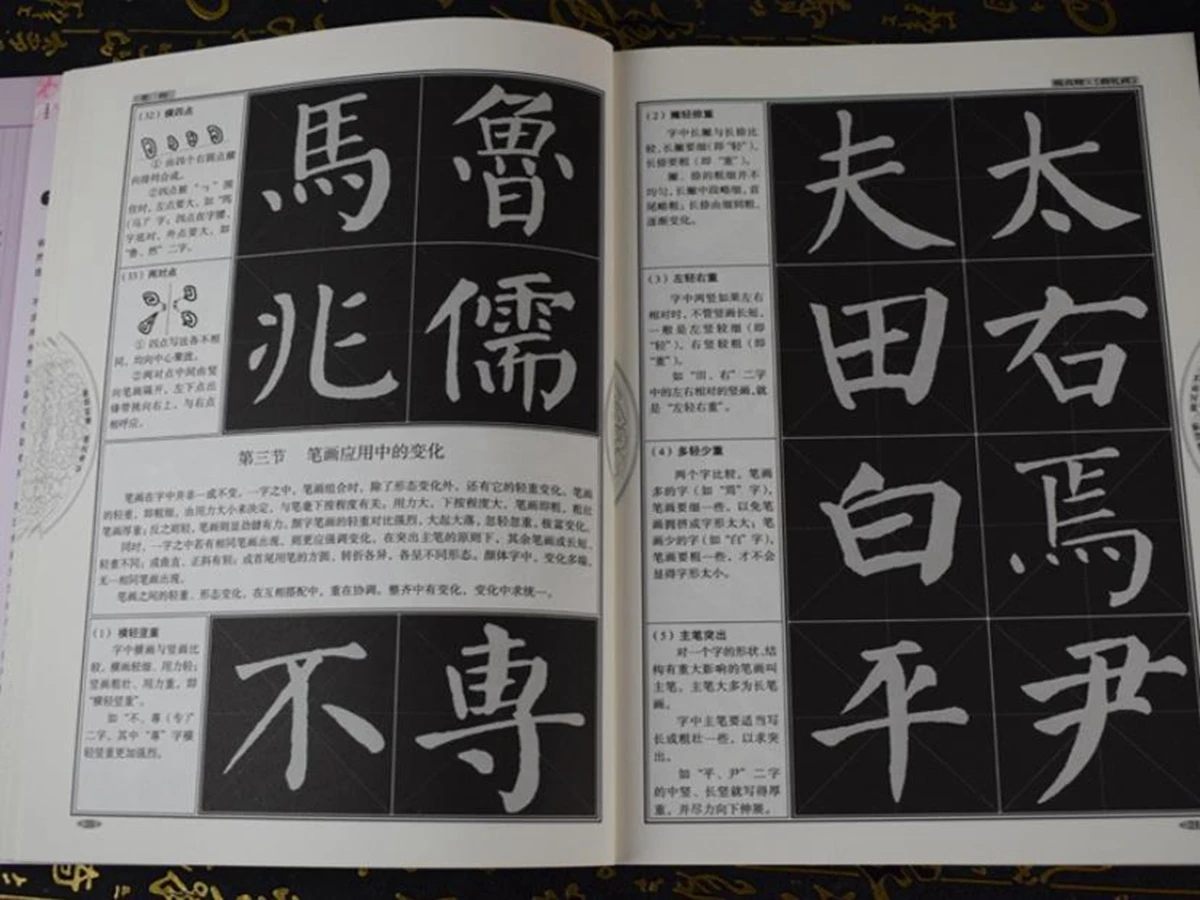 (32) 横四点
① 由四个右圆点横
向排列合成。
②四点被“㇆”围
住时,左点要大,如“馬
(马)”字;四点在字腰、
字底时,外点要大,即
“魯、然”二字。
馬 魯
(33) 两对点
① 四点写法各不相
同,均向中心聚拢。
②两对点中间由竖
向笔画隔开,左下点出
锋带挑向右上,与右点
相呼应。
兆 儒
第三节 笔画应用中的变化
笔画在字中并非一成不变。一字之中,笔画组合时,除了形态变化外,还有它的轻重变化。笔画
的轻重,即粗细,由用力大小来决定,与笔毫下按程度有关。用力大,下按程度大,笔画即粗,粗壮
笔画厚重;反之则轻,笔画则显劲健有力。颜字笔画的轻重对比强烈,大起大落,忽轻忽重,极富变化。
同时,一字之中若有相同笔画出现,则更应强调变化,在突出主笔的原则下,其余笔画或长短、
轻重不同;或曲直、正斜有别;或首尾用笔的方圆、转折各异,各呈不同形态。颜体字中,变化多端,
无一相同笔画出现。
笔画之间的轻重、形态变化,在互相搭配中,重在协调,整齐中有变化,变化中求统一。
(1) 横轻竖重
字中横画与竖画比
较,横画较细、用力轻;
竖画粗壮、用力重,即
“横轻竖重”。
如“不、專(专)”
二字,其中“專”字横
轻竖重更加强烈。
不 専
(2) 撇轻捺重
字中长撇与长捺比
较,长撇要细(即“轻”),
长捺要粗(即“重”)。
撇、捺的粗细并不
均匀,长撇中段略细,首
尾略粗;长捺由细到粗,
逐渐变化。
夫 太
(3) 左轻右重
字中两竖如果左右
相对时,不管竖画长短,
一般是左竖较细(即
“轻”),右竖较粗(即
“重”)。
如“田、右”二字
中的左右相对的竖画,就
是“左轻右重”。
田 右
(4) 多轻少重
两个字比较,笔画
多的字(如“焉”字),
笔画要细一些,以免笔
画拥挤或字形太大;笔
画少的字(如“白”字),
笔画要粗一些,才不会
显得字形太小。
白 焉
(5) 主笔突出
对一个字的形状、结
构有重大影响的笔画叫
主笔,主笔大多为长笔
画。
字中主笔要适当写
长或粗壮一些,以求突
出。
如“平、尹”二字
的中竖、长竖就写得厚
重,并尽力向下伸展。
平 尹